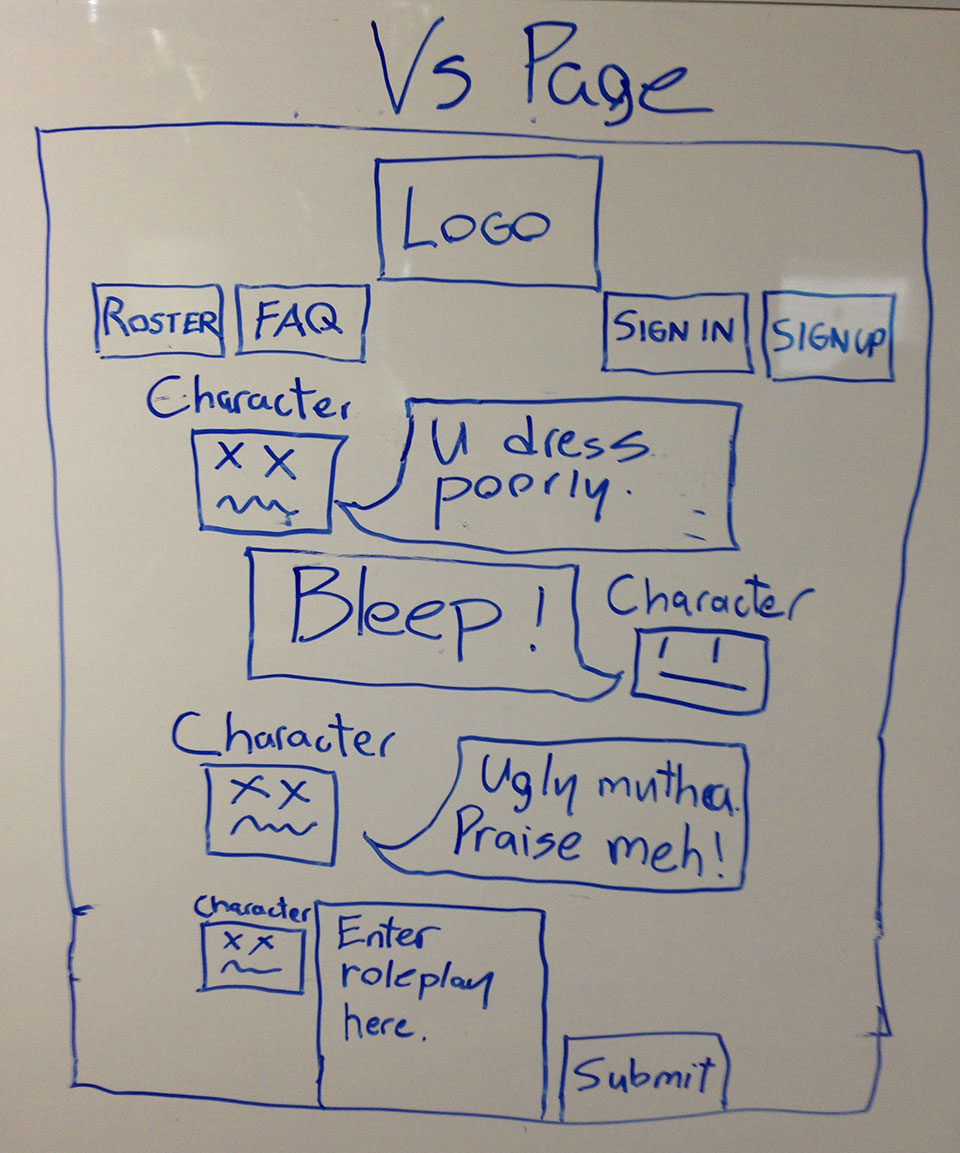 Vs Page
LOGO
ROSTER
FAQ
SIGN IN
SIGN UP
Character
U dress
poorly.
Bleep!
Character
Character
Ugly mutha.
Praise meh!
Character
Enter
roleplay
here.
Submit